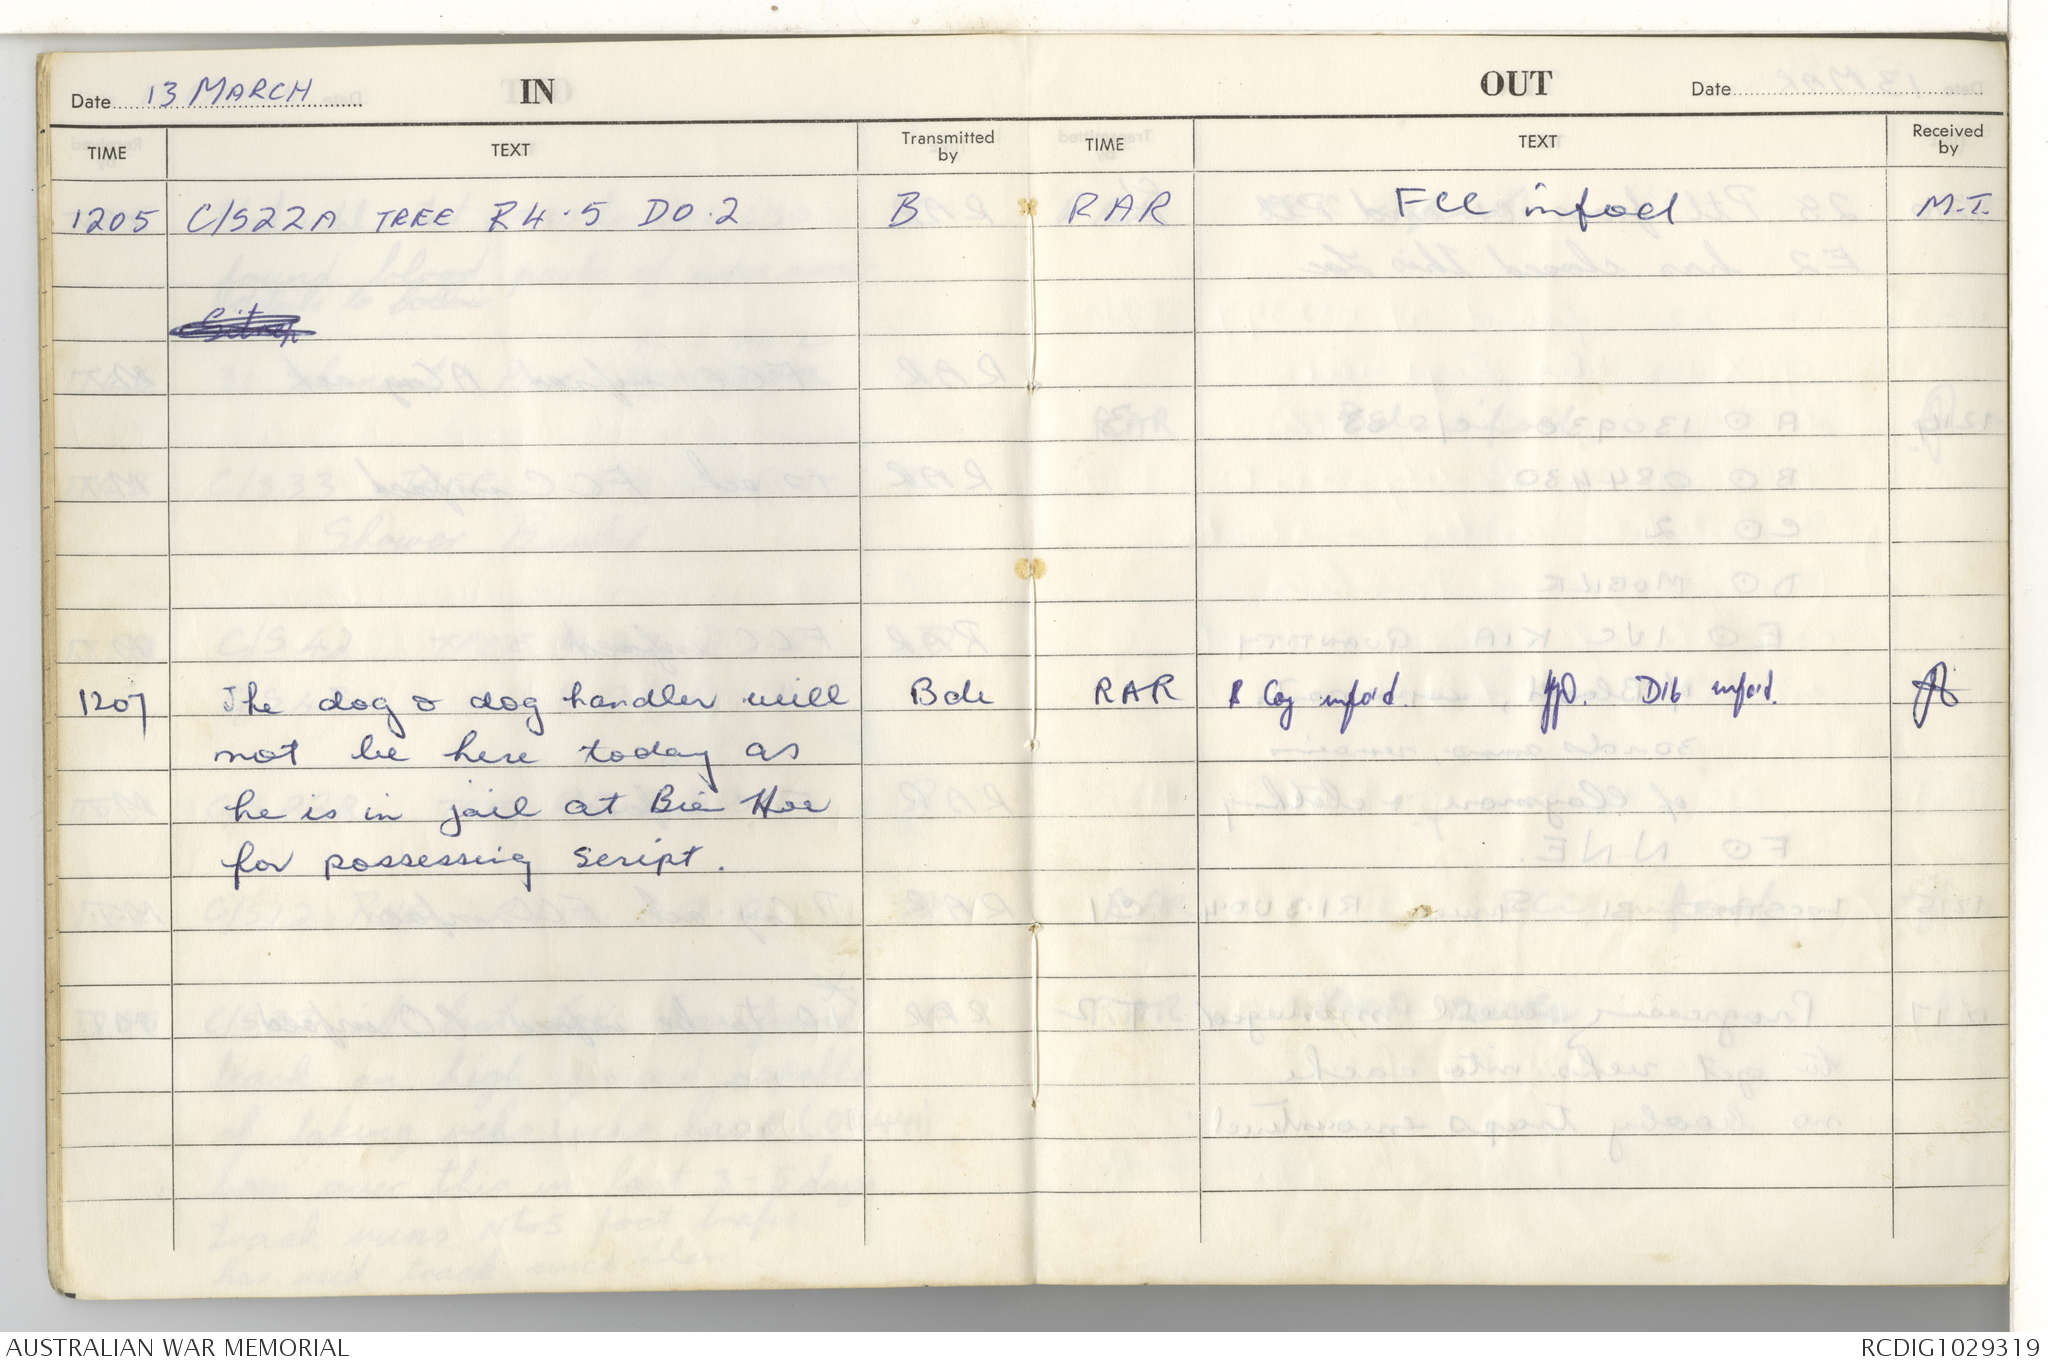 Date 13 MARCH IN
TIME TEXT Transmitted by
1205 C/S22A TREE R4.5 D0.2 B
1207 The dog & dog handler will Bde
not be here today as
he is in jail at Bien Hoe
for possessing script.
OUT Date
TIME TEXT Received by
RAR FCC infoed M.T.
RAR Coy infoid. Dib infoid.
AUSTRALIAN WAR MEMORIAL RCDIG1029319